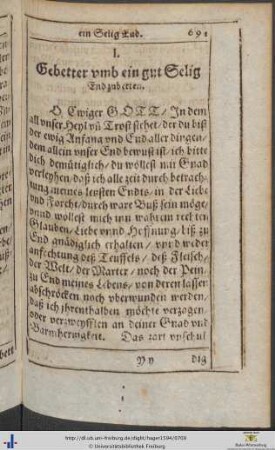 ein Selig End. 691
I.
Gebetter vmb ein gut Selig
End zubetten.
O Ewiger GOTT/ In dem
all vnser Heyl vñ Trost stehet/ der du bist
der ewig Anfang vnd End aller dingen/
dem allein vnser End bewust ist/ ich bitte
dich demütiglich/ du wöllest mit Gnad
verleyhen/ daß ich alle zeit durch betrach-
tung meines letsten Endts/ in der Liebe
vnd Forcht/ durch ware Buß sein möge/
vnnd wöllest mich im wahren rechten
Glauben/ Liebe vnnd Hoffnung/ biß zu
End gnädiglich erhalten/ vnd weder
anfechtung deß Teuffels/ deß Fleisch/
der Welt/ der Marter/ noch der Pein/
zu End meines Lebens/ von deren lasser
abschröcken noch vberwunden werden/
daß ich jhrenthalben möchte verzagen/
oder verzweyfflen an deiner Gnad vnd
Barmhertzigkeit. Das zart vnschul
Yy dig
http://dl.ub.uni-freiburg.de/diglit/hager1594/0703
© Universitätsbibliothek Freiburg
Baden-Württemberg